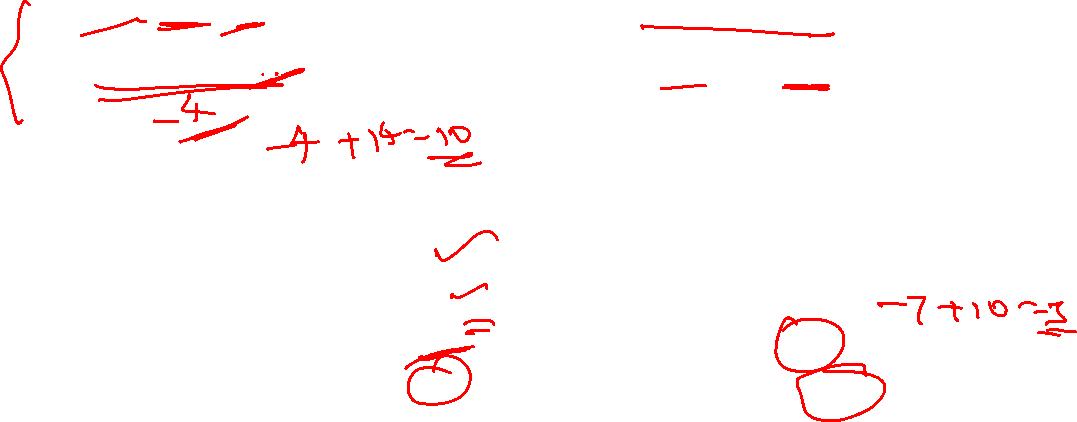 -4
-4 +14=-10
-7+10=-3